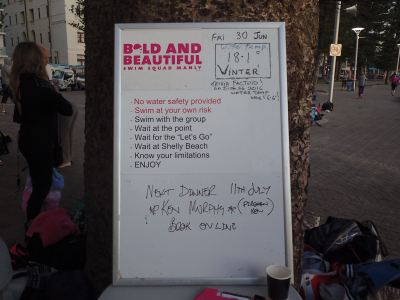 BOLD AND
BEAUTIFUL
SWIM SQUAD MANLY
FRI 30 JUN
Water Temp
18.1
'WINTER'
- No water safety provided
- Swim at your own risk
- Swim with the group
- Wait at the point
- Wait for the "Let's Go"
- Wait at Shelly Beach
- Know your limitations
- ENJOY
NEXT DINNER 11TH JULY
KEN MURPHY
BOOK ONLINE